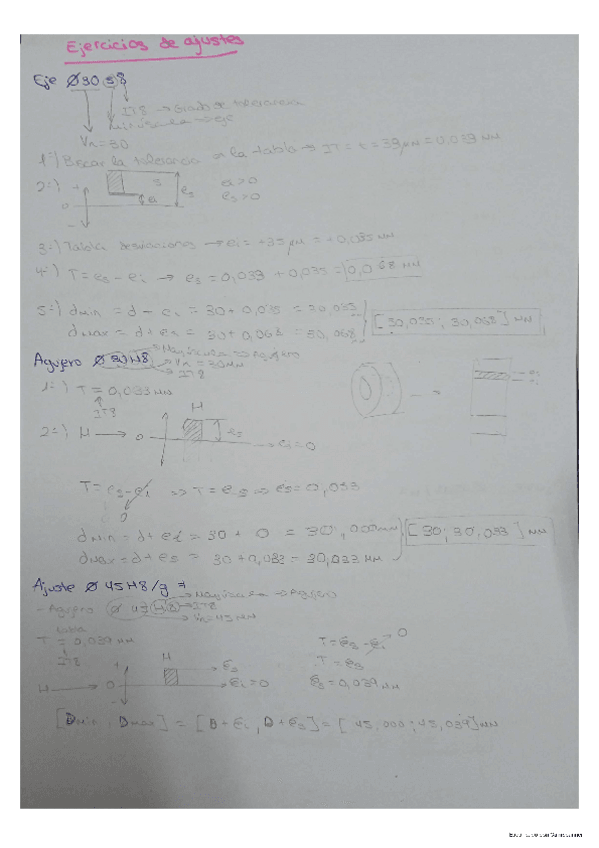 Ejercicios de ajustes
Eje Ø30 s8
IT8 → Grado de tolerancia
Minúscula → eje
Vn = 30
1º) Buscar la tolerancia en la tabla → IT = t = 39 µm = 0,039 mm
2º) + s es ei>0
0 ei es>0
-
3º) Tabla desviaciones → ei = +35 µm = +0,035 mm
4º) T = es - ei → es = 0,033 + 0,035 = 0,068 mm
5º) dmin = d + ei = 30 + 0,035 = 30,035
[30,035; 30,068] mm
dmax = d + es = 30 + 0,068 = 30,068
Mayúscula → Agujero
Agujero Ø 30H8 Vn = 30mm
IT8
1º) T = 0,033 mm
IT8
H
2º) H → 0 es
ei = 0
T = es - ei => T = es => es = 0,033
0
dmin = d + ei = 30 + 0 = 30,000mm
[30; 30,033] mm
dmax = d + es = 30 + 0,033 = 30,033 mm
Ajuste Ø 45H8/g7
Mayúscula → Agujero
- Agujero Ø 45H8 IT8
Vn = 45mm
tabla
T = 0,039 mm T = es - ei 0
IT8 T = es
H + H es
H → 0 ei = 0 es = 0,039 mm
-
[Dmin, Dmax] = [D + ei, D + es] = [45,000; 45,039] mm